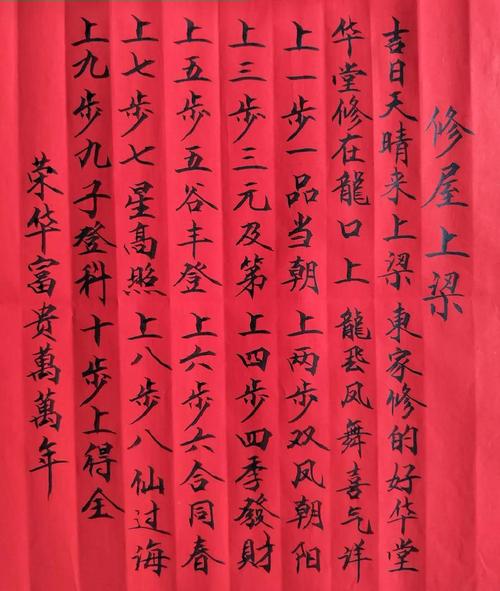 修屋上梁
吉日天晴来上梁 東家修的好华堂
华堂修在龍口上 龍飛凤舞喜气洋
上一步一品当朝 上两步双凤朝阳
上三步三元及第 上四步四季發財
上五步五谷丰登 上六步六合同春
上七步七星高照 上八步八仙过海
上九步九子登科 十步上得全
荣华富贵萬萬年